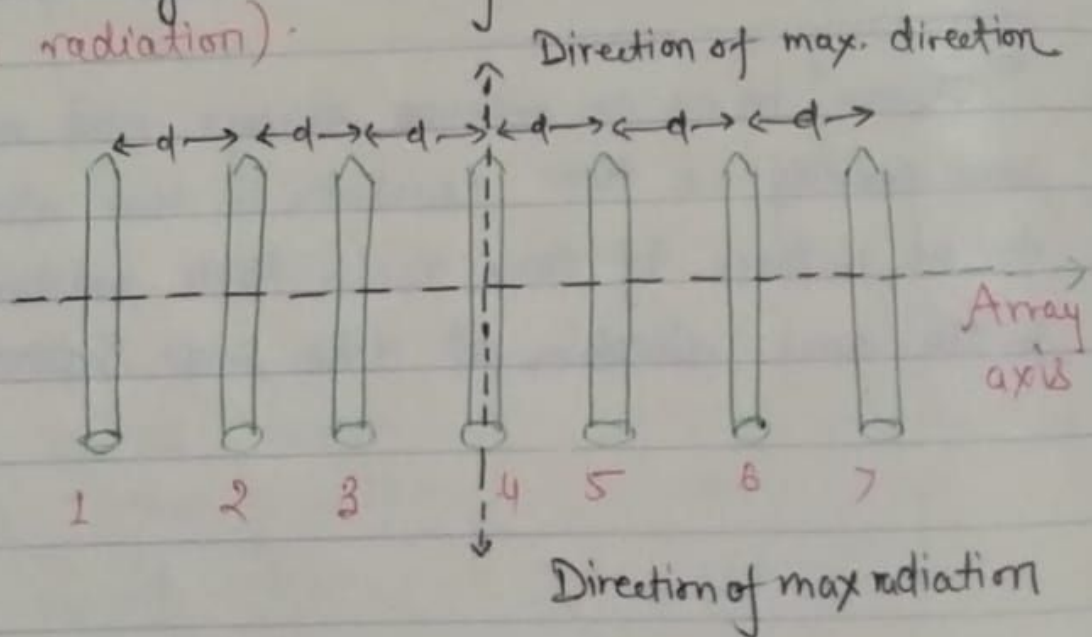 radiation).
Direction of max. direction
d d d d d d
Array
axis
1 2 3 4 5 6 7
Direction of max radiation